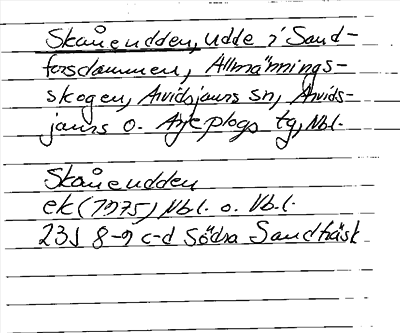 Skåneudden, udde i Sand-
forsdammen, Allmännings-
skogen, Arvidsjaurs sn, Arvids-
jaurs o. Arjeplogs tg, Nbl.
Skåneudden
ek (1975) Nbl. o. Vb.l.
23J 8-9 c-d Södra Sandträsk